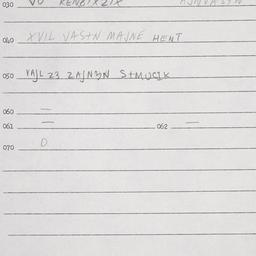 030 VO
040 XVIL VASTN MAJNE HENT
050 VAJL 23 ZAJNEN STMUCIK
060 —
061 — 062 —
070 0